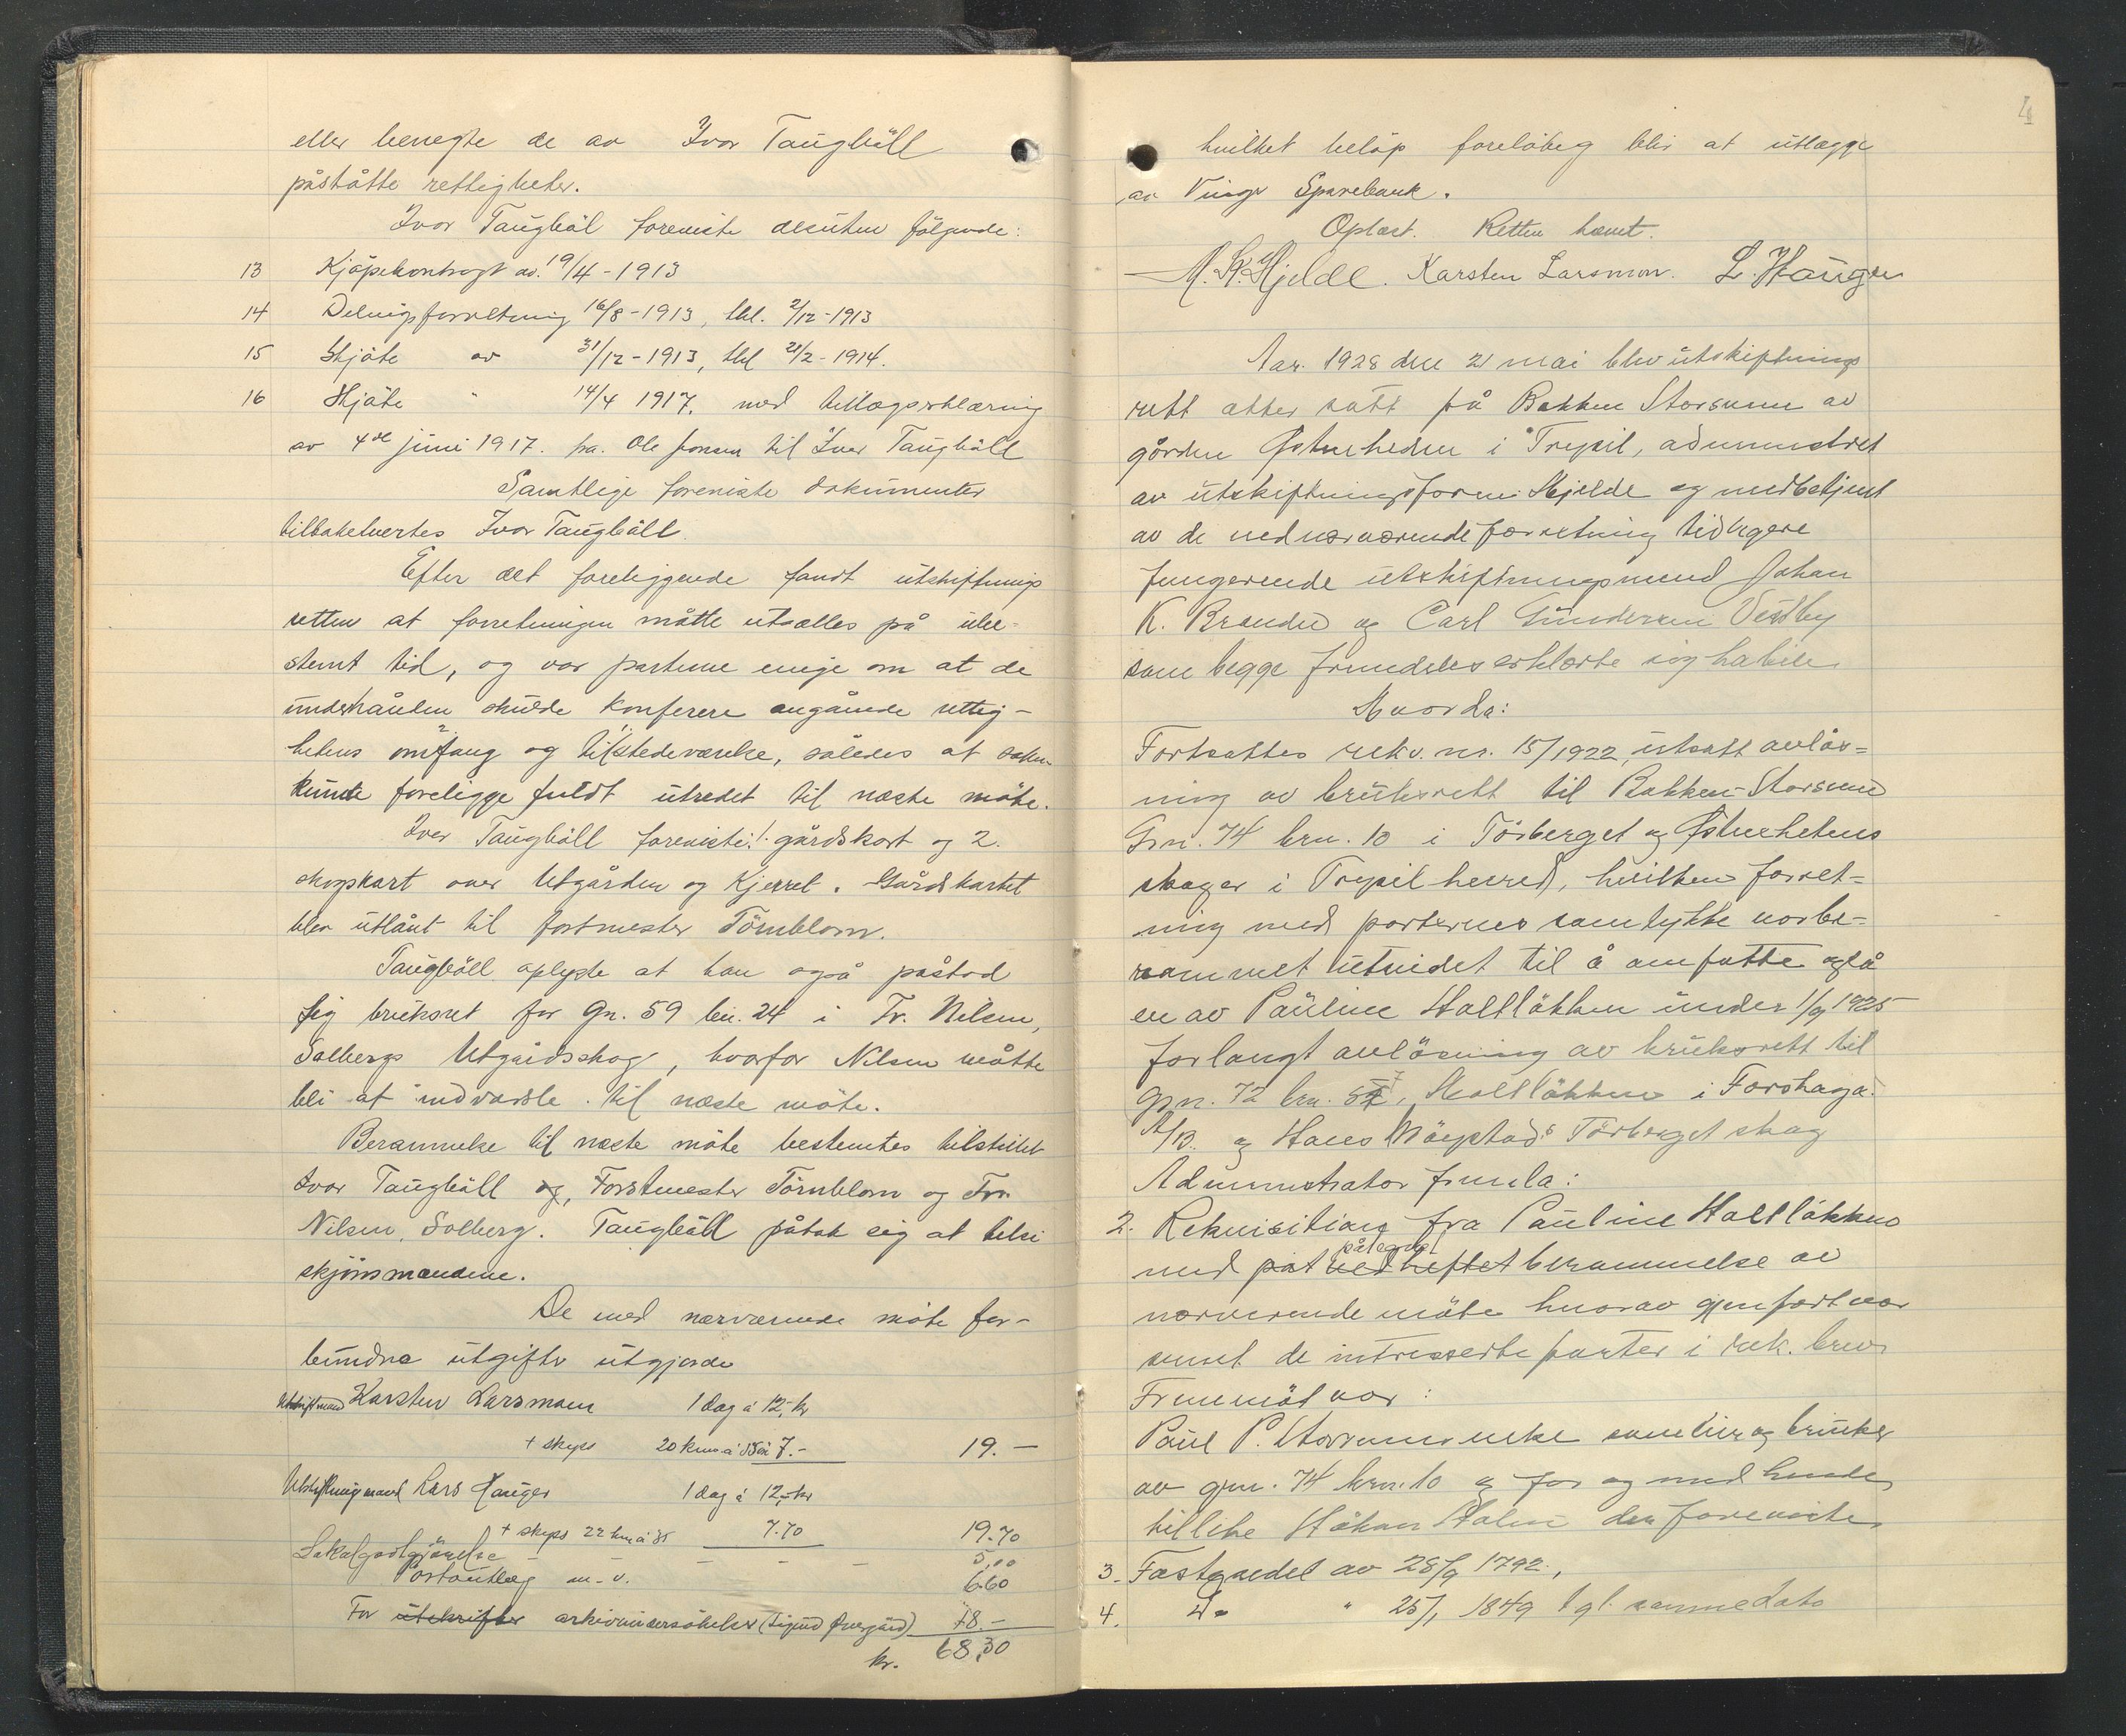 eller benegte de av Ivar Taugböll
påståtte rettigheter.
Ivar Taugböl foreviste desuten fölgende:
13 Kjöpekontragt av. 19/4 - 1913
14 Delingsforretning 16/8 - 1913, tkl. 2/12 - 1913
15 Skjöte av 31/12 - 1913, tkl 21/2 - 1914.
16 Skjöte " 14/4 1917, med tillægserklæring
av 4de juni 1917. fra. Ole Jonsen til Ivar Taugböll
Samtlige foreviste dokumenter
tilbakelevertes Ivar Taugböll.
Efter det foreliggende fandt utskiftnings
retten at forretningen måtte utsættes på ube-
stemt tid, og var parterne enige om at de
underhånden skulde konferere angående rettig-
hetens omfang og tilstedeværelse, således at saken
kunde foreligge fuldt utredet til næste möte.
Ivar Taugböll foreviste: 1. gårdskart og 2.
skogskart over Utgården og Kjerret. Gårdskartet
blev utlånt til forstmester Törnblom.
Taugböll oplyste at han også påstod
sig bruksret for Gn. 59 bn. 24 i Fr. Nilsen,
Solbergs Utgårdsskog, hvorfor Nilsen måtte
bli at indvarsle til næste möte.
Berammelse til næste möte bestemtes tilstillet
Ivar Taugböll og, Forstmester Törnblom og Fr.
Nilsen, Solberg. Taugböll påtok sig at tilsi
skjönsmændene.
De med nærværende möte for-
bundne utgifter utgjorde
Utskiftmand Karsten Larsmoen 1 dag á 12,- kr
+ skyss 20 km á 35 öre 7.- 19.-
Utskiftningsmand Lars Hauger 1 dag á 12,- kr
+ skyss 22 km á 35 7.70 19.70
Lokalgodtgjörelse - - - - - 5,00
Portoutlæg m. v. 6.60
For utskrifter arkivundersökelser (Sigurd Övergård) 18.-
kr. 68,30
4
hvilket belöp forelöbig blir at utlægge
av Vinger Sparebank.
Oplæst. Retten hævet.
M. K. Hjelde. Karsten Larsmon. L. Hauger
Aar. 1928 den 21 mai blev utskiftnings
rett atter satt på Bakken Storsund av
gården Østerheden i Trysil, administret
av utskiftningsform. Hjelde og medbetjent
av de ved nærværende forretning tidligere
fungerende utskiftningsmend Johan
K. Brænden og Carl Gundersen Vestby
som begge fremdeles erklærte sig habile.
Hvorda:
Fortsattes rekv. nr. 15/1922, utsatt avlös-
ning av bruksrett til Bakken Storsund
Grn. 74 brn. 10 i Törberget og Østerhetens
skoger i Trysil herred, hvilken forret-
ning med parternes samtykke var be-
rammet utvidet til å omfatte også
en av Pauline Holtlökken under 1/9 1925
forlangt avlösning av bruksrett til
grn. 72 brn. 57, Holtlökken i Forshaga
A/B. og Hans Nöystads Törberget skog
Administrator fremla:
2. Rekvisition fra Pauline Holtlökken
med påt vedheftet påtegnet berammelse av
nærværende möte hvorav gjenpart var
sendt de interesserte parter i rek. brev
Fremmöt var:
Paul P. Storsunds enke som eier og bruker
av grn. 74 brn. 10 og for og med hende
tillike Håkon Holen der foreviste
3. Fæstesedel av 28/9 1792,
4. Do " 25/1 1849 tgl. samme dato